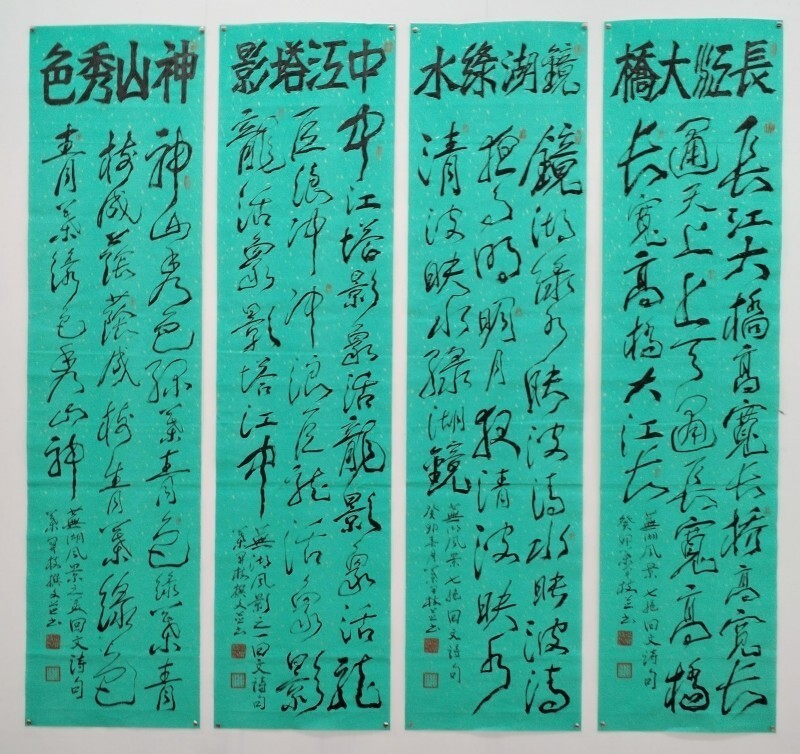 長江大橋
長江大橋高寬長橋高寬長
通天上上天通長寬高橋
长寬高橋大江长
蕪湖風景七絕回文詩句
癸卯
鏡湖綠水
鏡湖绿水映波清水映波清
夜月明明月夜清波映水
清波映水绿湖鏡
蕪湖風景七絕回文詩句
癸卯
中江塔影
中江塔影象活龍影象活龍
巨浪冲冲浪巨龙活象影
龍活象影塔江中
蕪湖風影之一回文詩句
撰文並书
神山秀色
神山秀色绿葉青色绿葉青
樹成蔭蔭成樹青葉绿色
青葉绿色秀山神
蕪湖風景之五回文詩句
撰文並书